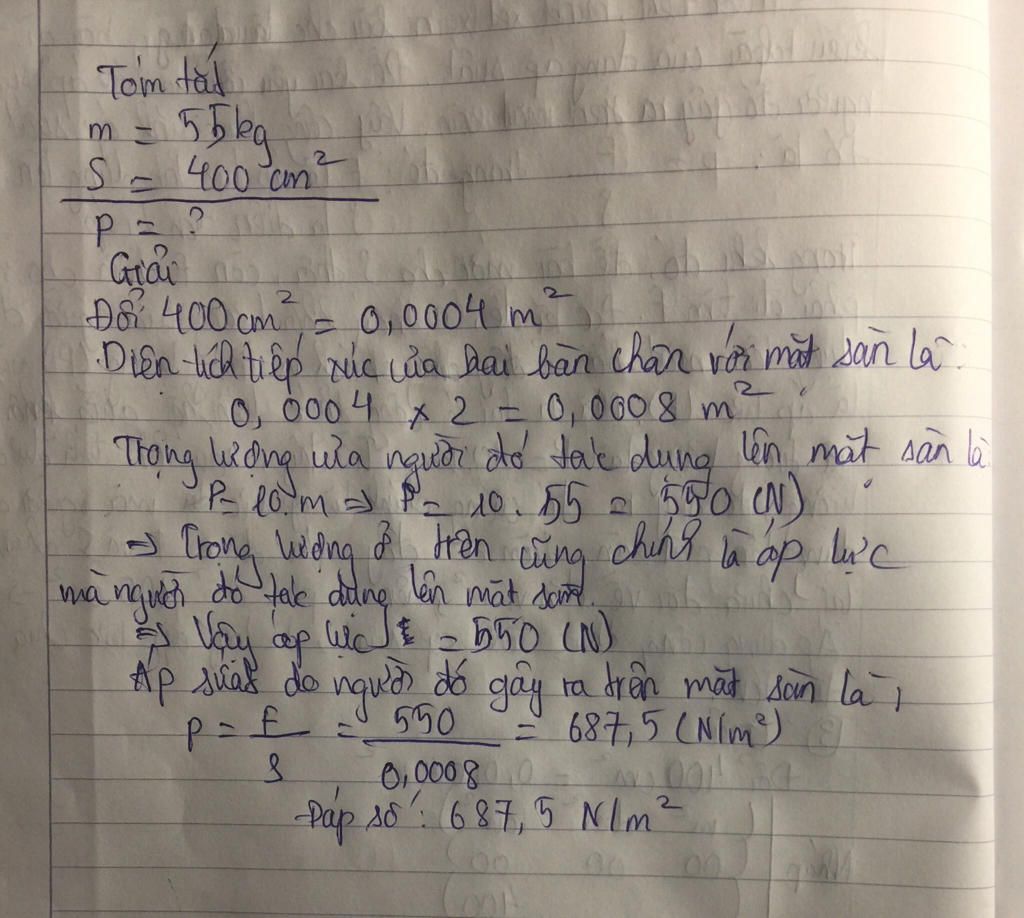 Tóm tắt
m = 55kg
S = 400 cm²
P = ?
Giải
Đổi 400cm² = 0,0004 m²
Diện tích tiếp xúc của hai bàn chân với mặt sàn là:
0,0004 x 2 = 0,0008 m²
Trọng lượng của người đó tác dụng lên mặt sàn là
P = 10.m => P = 10 . 55 = 550 (N)
=> Trọng lượng ở trên cũng chính là áp lực
mà người đó tác dụng lên mặt sàn.
=> Vậy áp lực = 550 (N)
Áp suất do người đó gây ra trên mặt sàn là,
p = F/S = 550/0,0008 = 687,5 (N/m²)
Đáp số: 687,5 N/m²